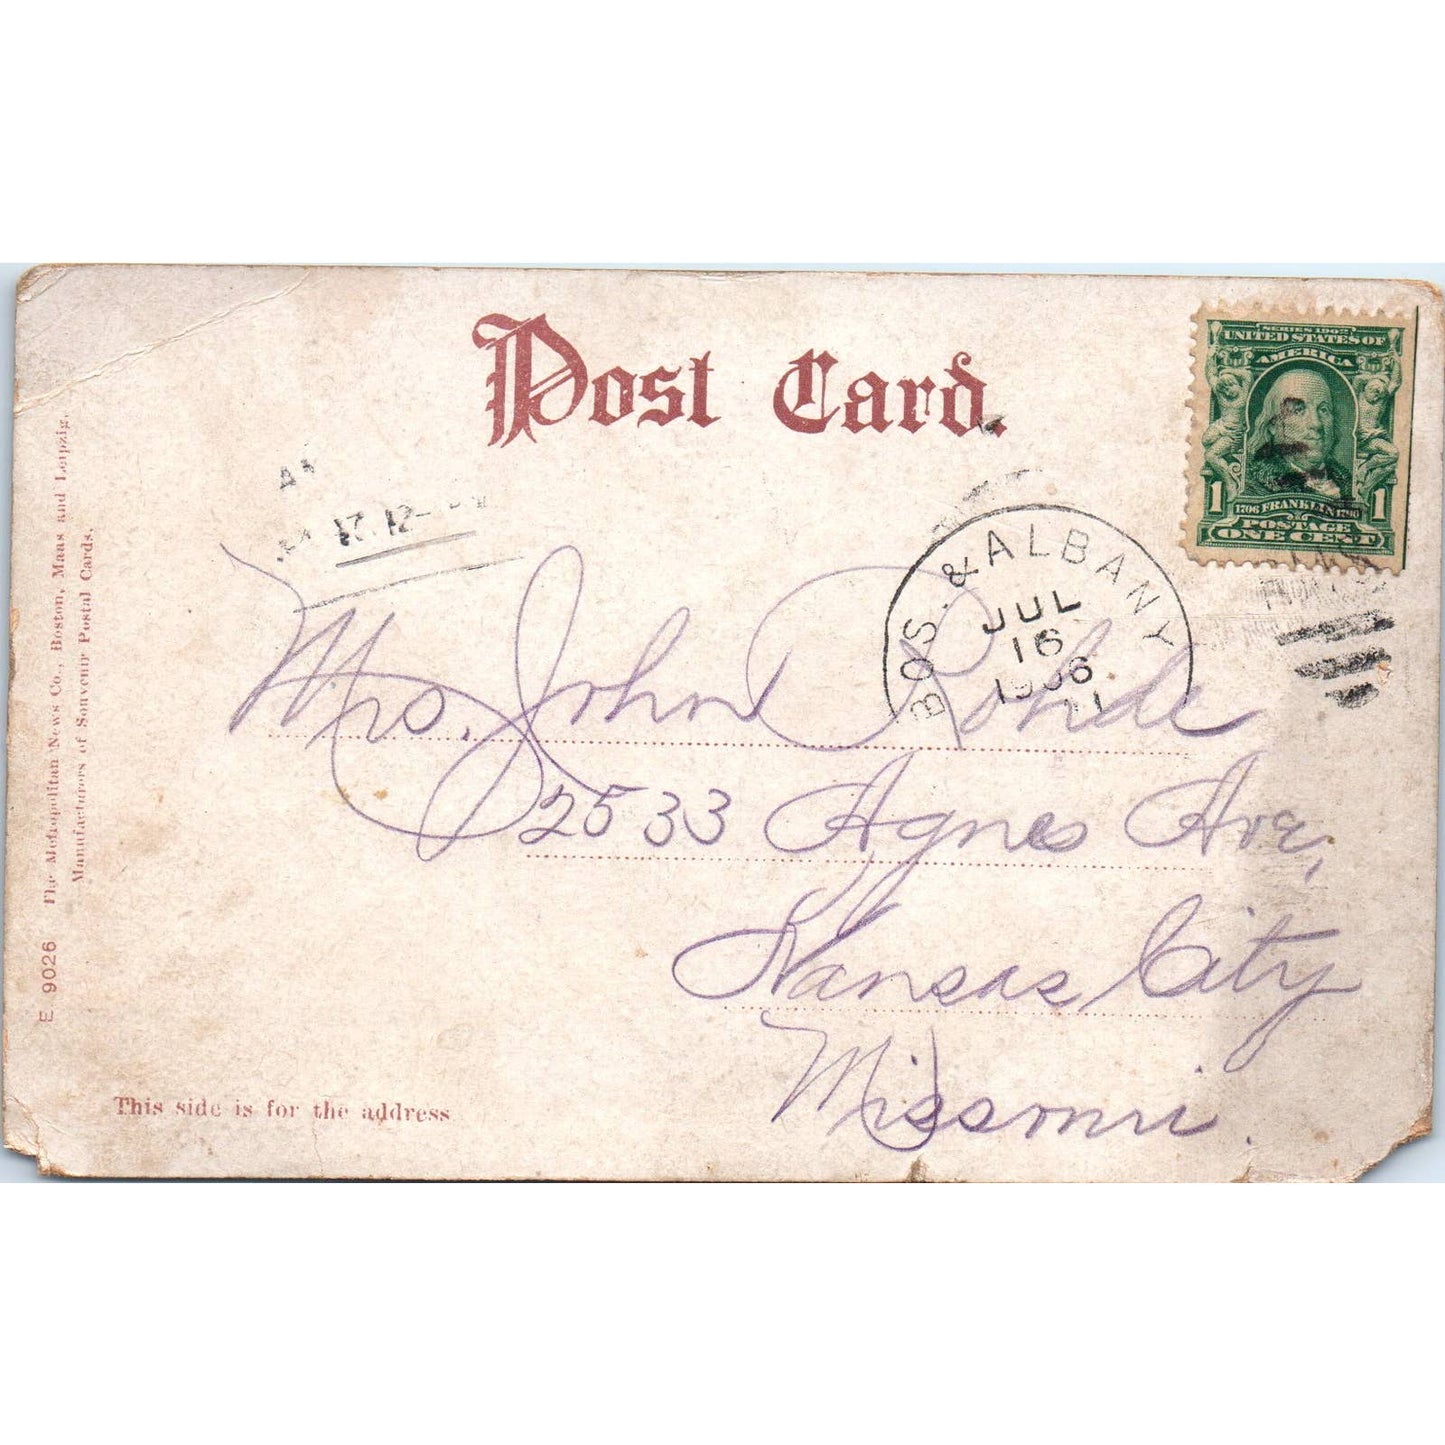 Post Card.
SERIES 1902
UNITED STATES OF
AMERICA
1 1
1706 FRANKLIN 1790
POSTAGE
ONE CENT
BOS. & ALBANY
JUL
16
1906
17. 12-
Mrs. John Rohde
2533 Agnes Ave,
Kansas City
Missouri.
This side is for the address
E 9026 The Metropolitan News Co., Boston, Mass and Leipzig.
Manufacturers of Souvenir Postal Cards.